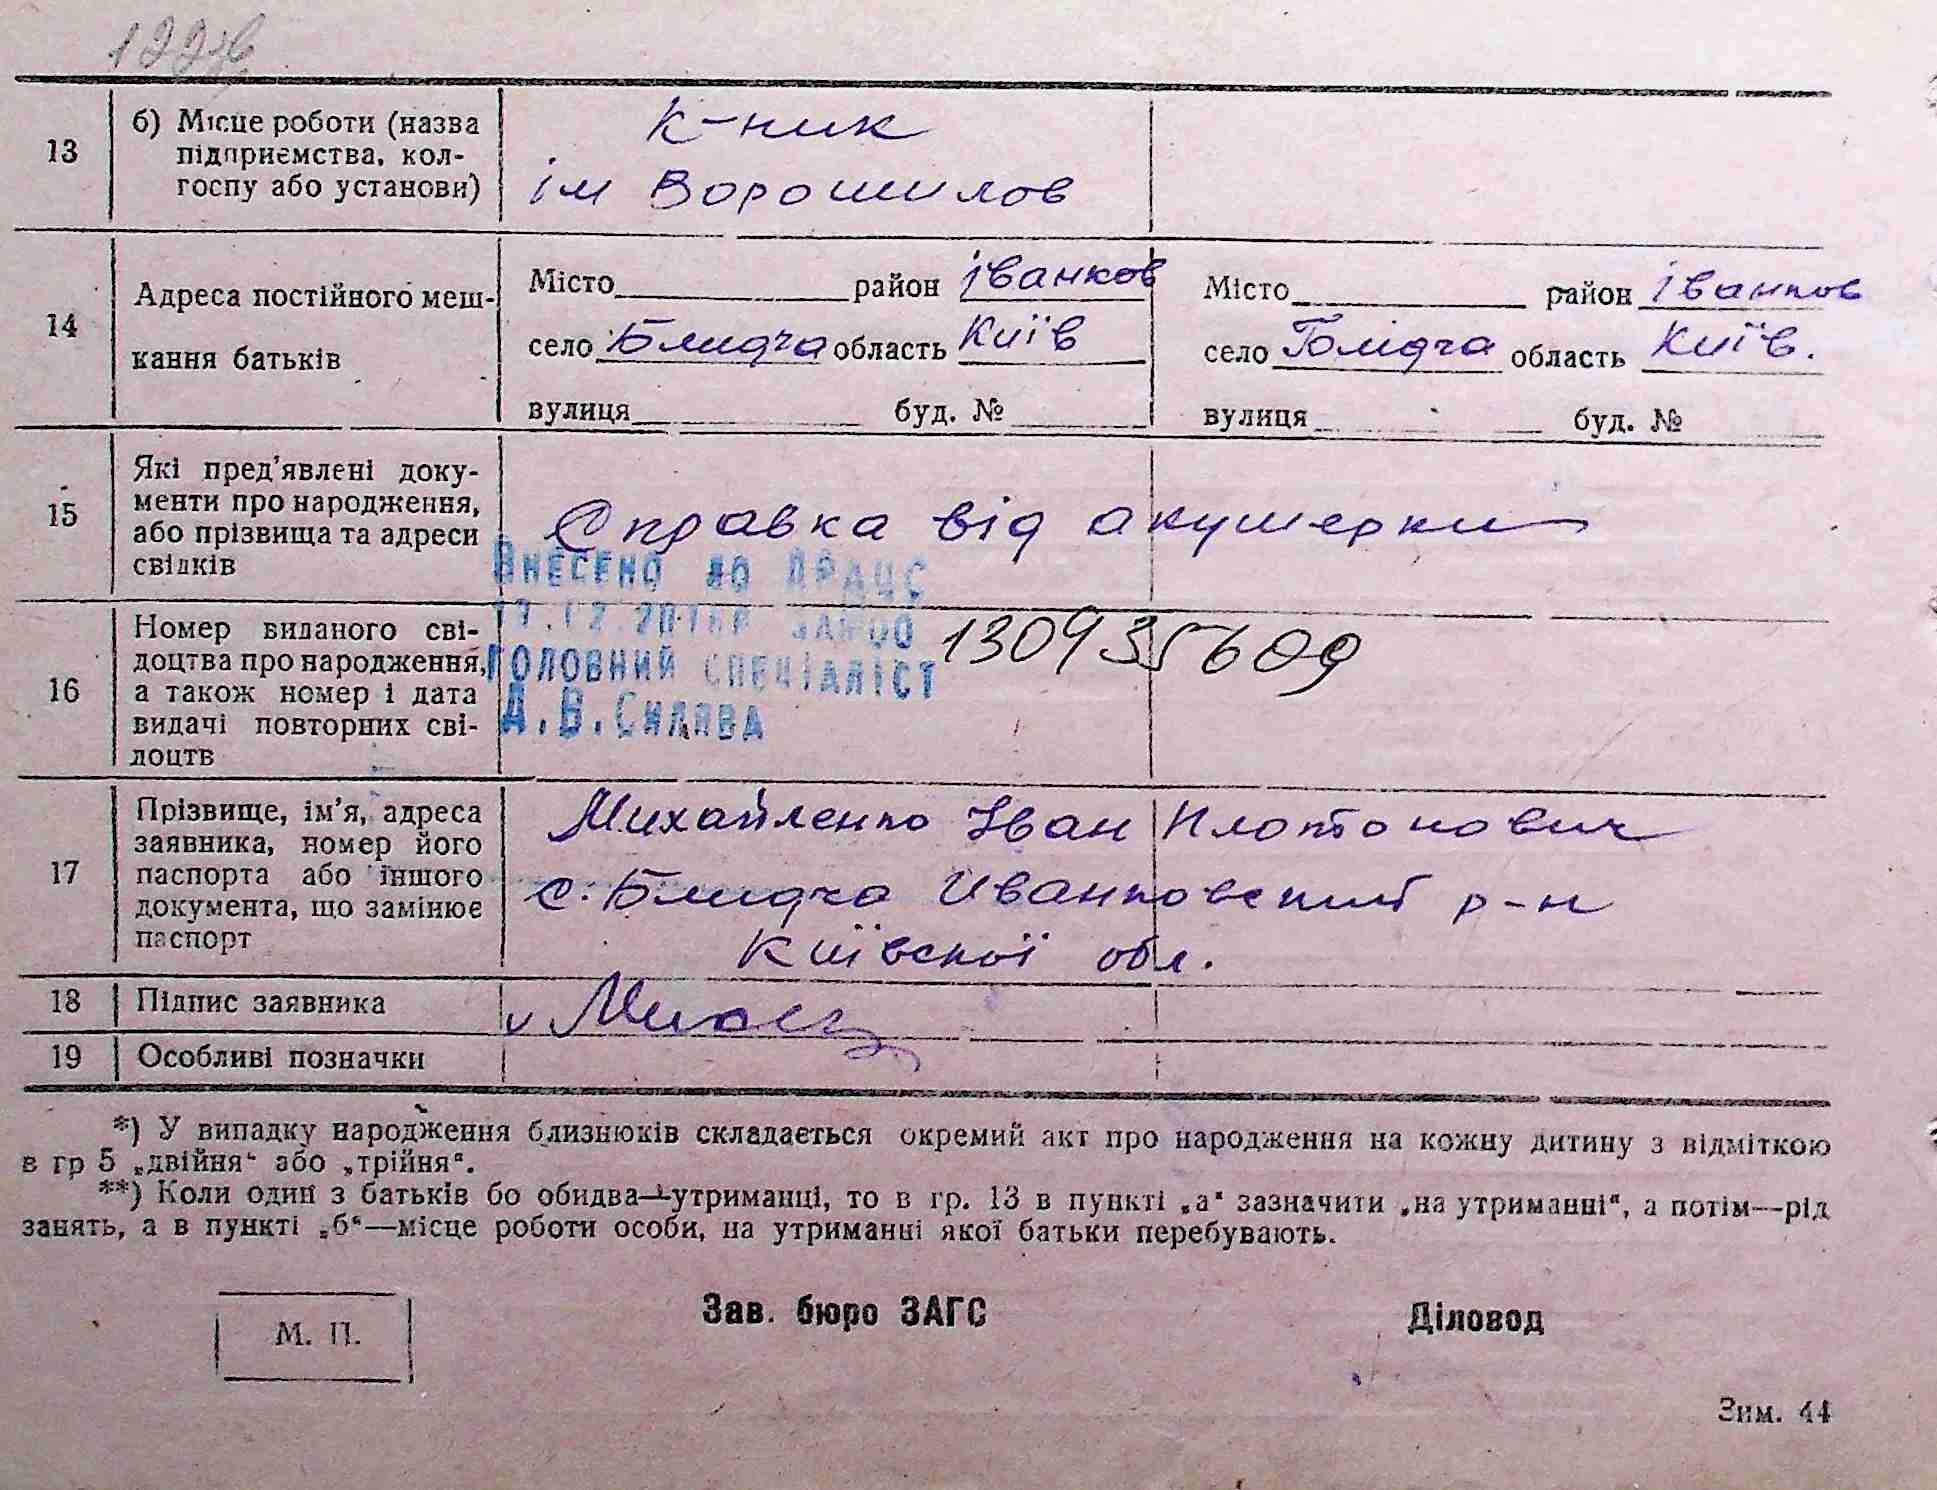 122
13
б) Місце роботи (назва
підприємства, кол-
госпу або установи)
К-ник
ім Ворошилов
14
Адреса постійного меш-
кання батьків
Місто район Іванков
село Блидча область Київ
вулиця буд. №
Місто район Іванков
село Блідча область Київ.
вулиця буд. №
15
Які пред'явлені доку-
менти про народження,
або прізвища та адреси
свідків
Справка від акушерки
ВНЕСЕНО ДО ДРАЦС
ГОЛОВНИЙ СПЕЦІАЛІСТ
16
Номер виданого сві-
доцтва про народження,
а також номер і дата
видачі повторних сві-
доцтв
130935609
17
Прізвище, ім'я, адреса
заявника, номер його
паспорта або іншого
документа, що замінює
паспорт
Михайленко Іван Платонович
с. Блидча Иванковский р-н
Київскої обл.
18 Підпис заявника
19 Особливі позначки
*) У випадку народження близнюків складається окремий акт про народження на кожну дитину з відміткою
в гр 5 „двійня" або „трійня".
**) Коли один з батьків бо обидва—утриманці, то в гр. 13 в пункті „а" зазначити „на утриманні", а потім—рід
занять, а в пункті „б"—місце роботи особи, на утриманні якої батьки перебувають.
М. П.
Зав. бюро ЗАГС
Діловод
Зим. 44